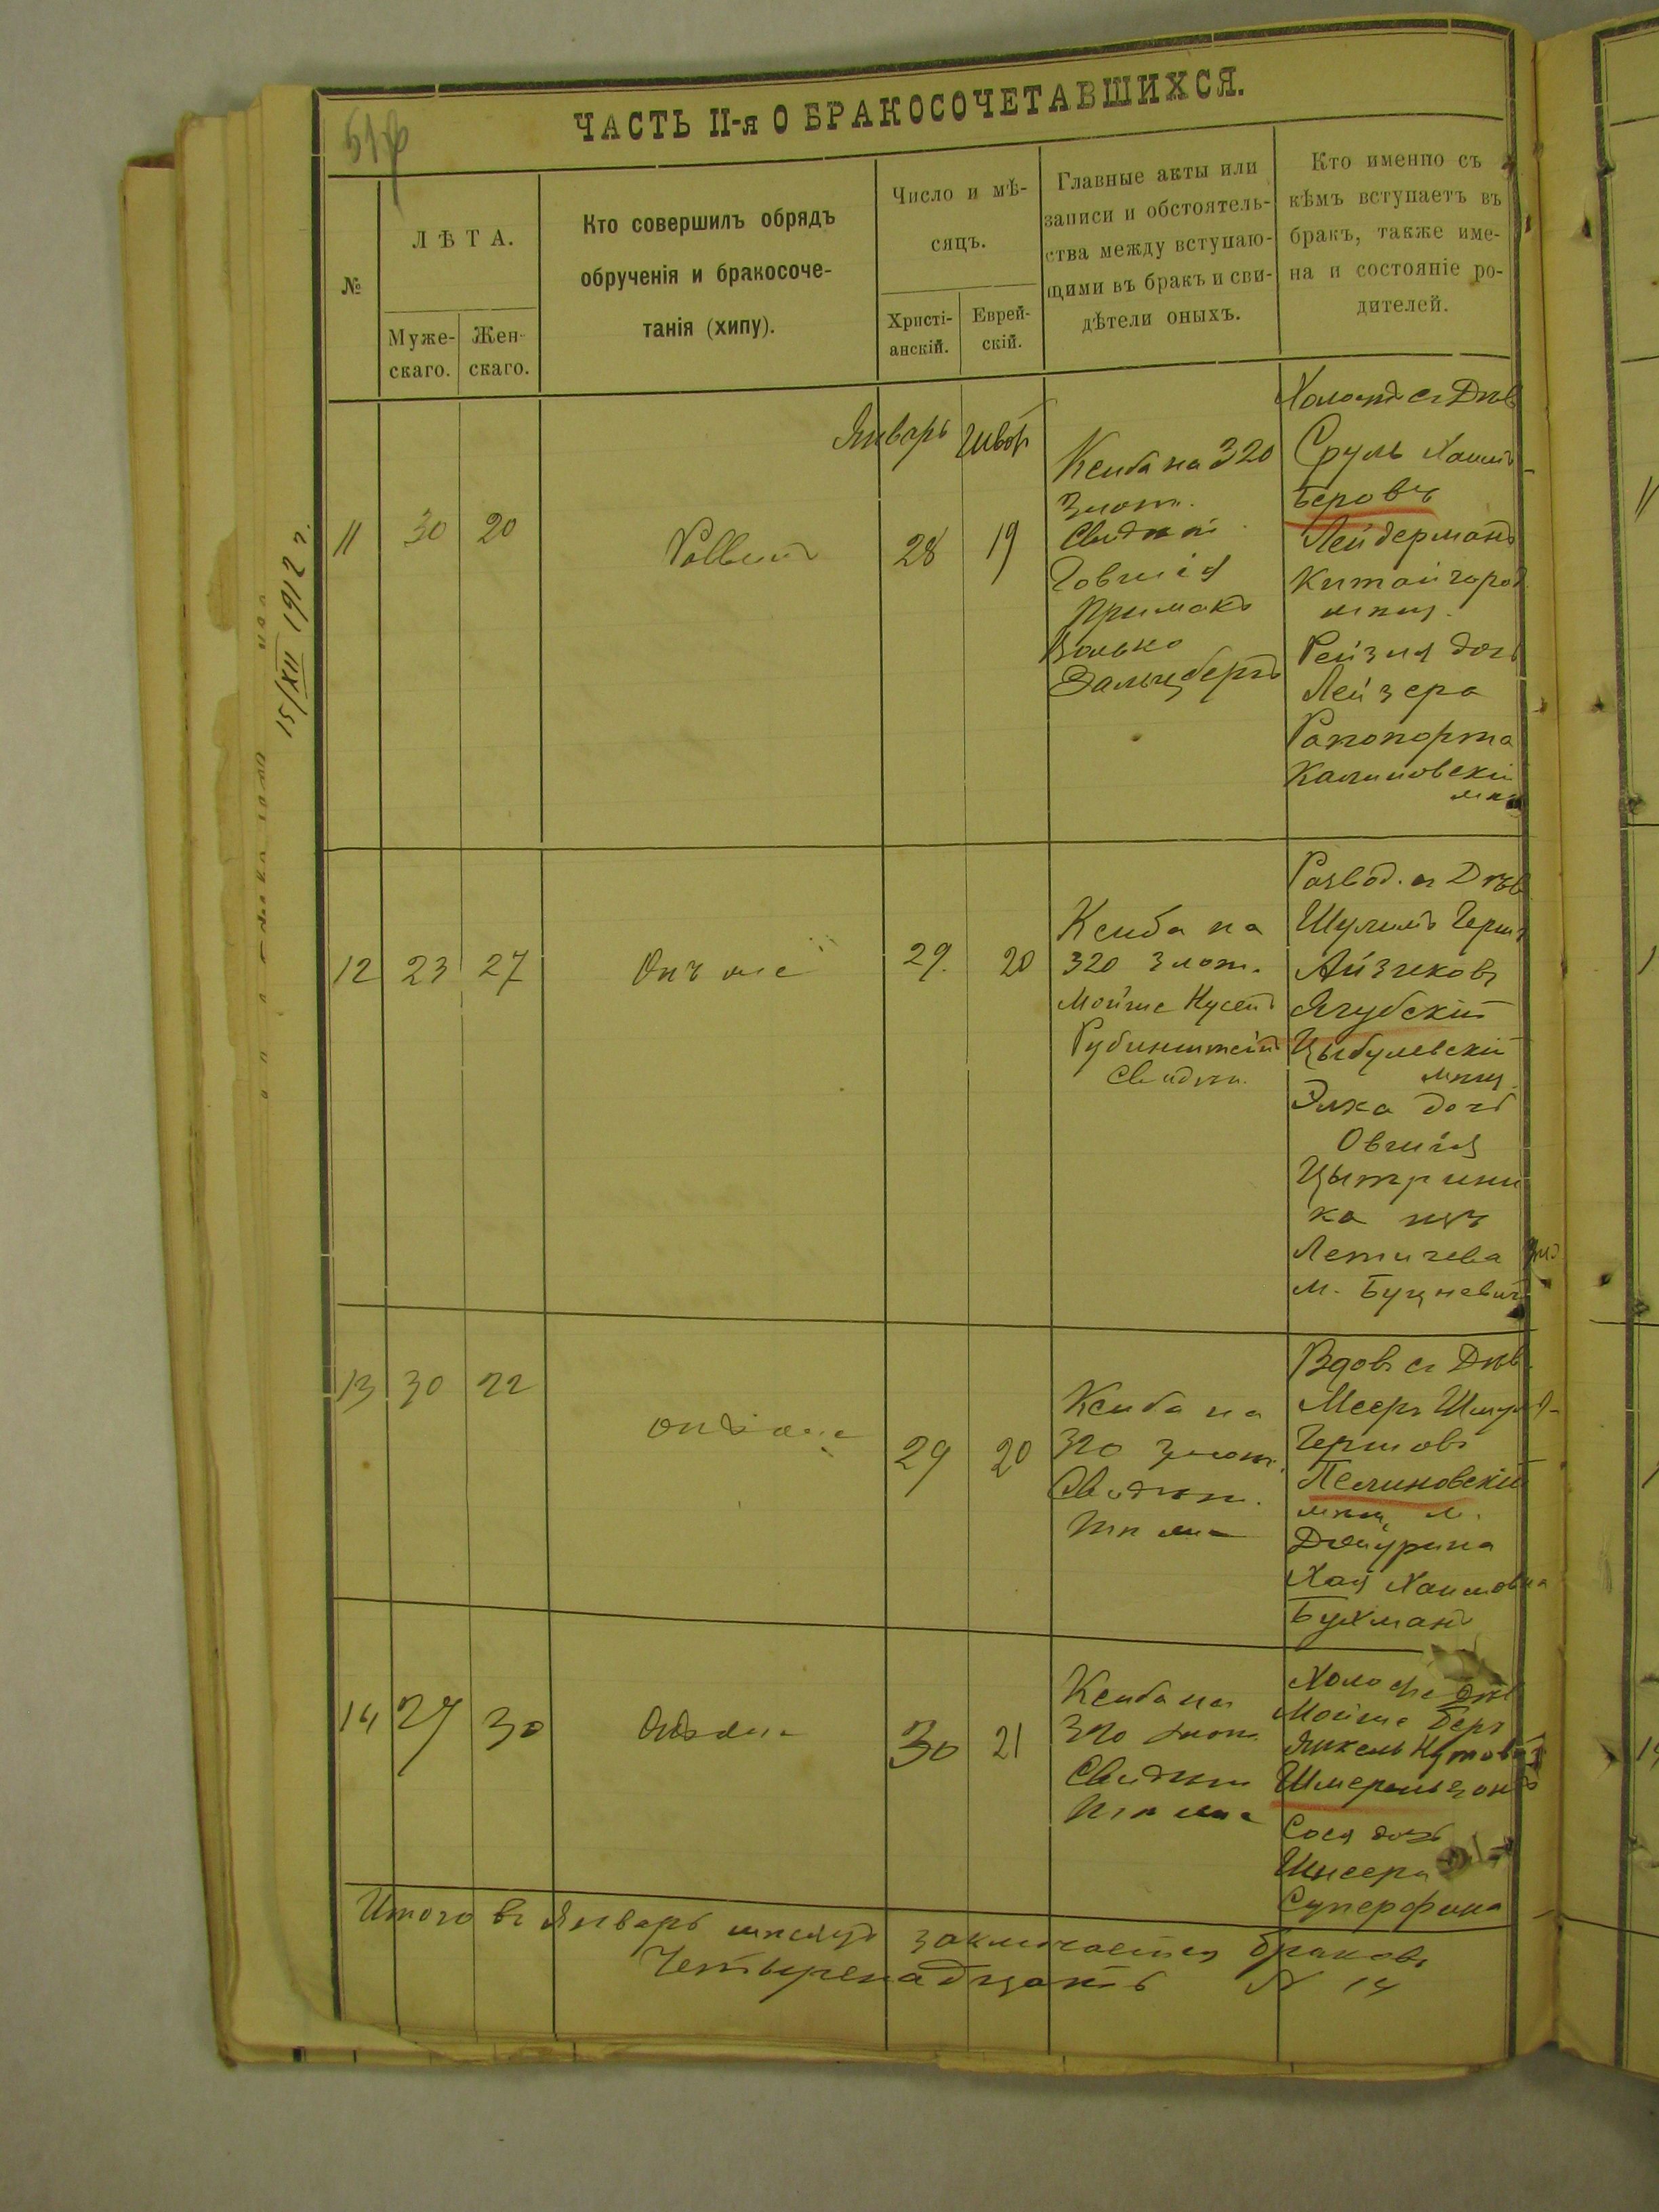 ЧАСТЬ II-я О БРАКОСОЧЕТАВШИХСЯ.
№
ЛѢТА.
Муже-
скаго.
Жен-
скаго.
Кто совершилъ обрядъ
обрученія и бракосоче-
танія (хипу).
Число и мѣ-
сяцъ.
Христі-
анскій.
Еврей-
скій.
Главные акты или
записи и обстоятель-
ства между вступаю-
щими въ бракъ и сви-
дѣтели оныхъ.
Кто именно съ
кѣмъ вступаетъ въ
бракъ, также име-
на и состояніе ро-
дителей.
15/XII 1912 г.
11
30
20
Раввинъ
Январь
28
Шват
19
Ксиба на 320
злот.
Свидѣт.
Примакъ
Волько
Зальцбергъ
Холост съ Дѣв
Сруль Хаим-
Беровъ
Лейдерманъ
Китайгород
мѣщ.
Рейзя дочь
Лейзера
Рапопорта
Калиновскій
мѣщ
12
23
27
Онъ же
29
20
Ксиба на
320 злот.
Мойше Нусен
Рубинштейн
Свидѣт.
Развод. съ Дѣв
Шулимъ Герш
Айзиковъ
Ягубскій
Цыбулевскій
мѣщ.
Элка дочь
Овшія
Цытрини
ка изъ
Летичева
м. Буцневич
13
30
22
Онъ же
29
20
Ксиба на
320 злот.
Свидѣт.
Тѣ же
Вдов съ Дѣв.
Мееръ
Гершовъ
мѣщ. м.
Джурина
Хая Хаимовна
Бухманъ
14
27
30
Онъ же
30
21
Ксиба на
320 злот
Свидѣт
Тѣ же
Холос съ Дѣв
Мойше Беръ
Янкель Нутовъ
Шмерельзонъ
Сося дочь
Суперфина
Итого въ Январь мѣсяцъ заключается браковъ
Четырнадцать № 14